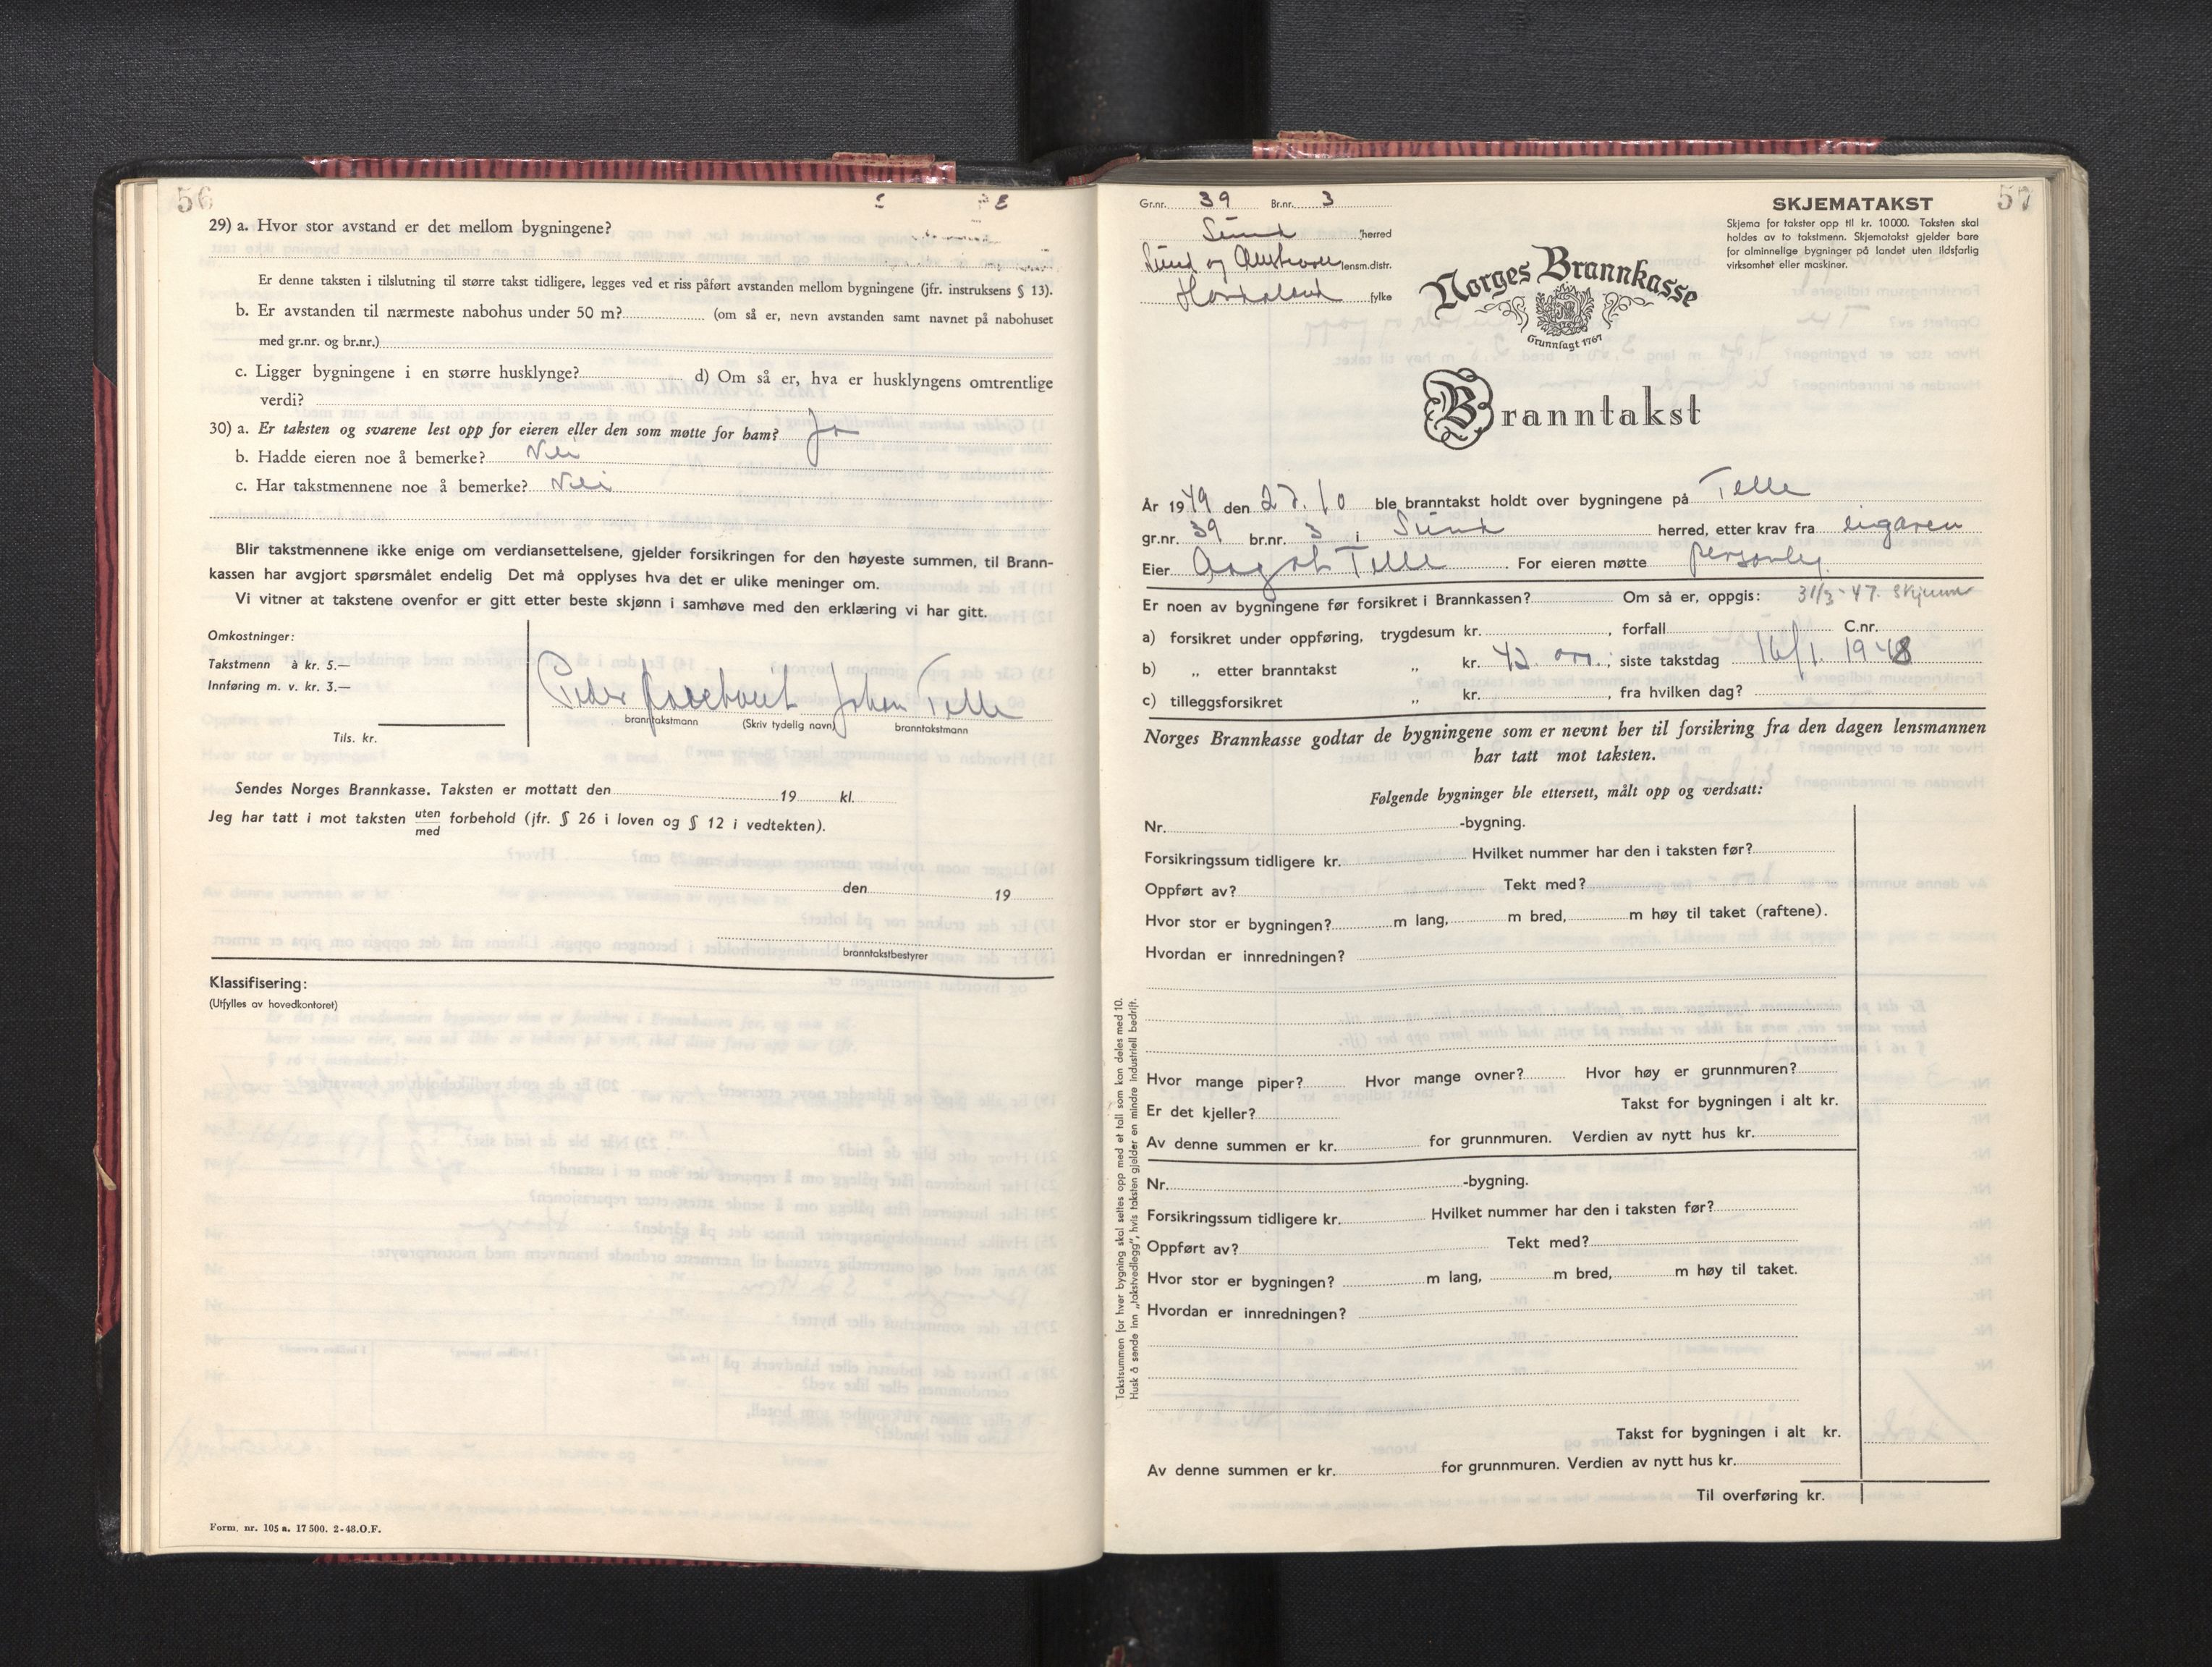 56
29) a. Hvor stor avstand er det mellom bygningene?
Er denne taksten i tilslutning til større takst tidligere, legges ved et riss påført avstanden mellom bygningene (jfr. instruksens § 13).
b. Er avstanden til nærmeste nabohus under 50 m? (om så er, nevn avstanden samt navnet på nabohuset
med gr.nr. og br.nr.)
c. Ligger bygningene i en større husklynge? d) Om så er, hva er husklyngens omtrentlige
verdi?
30) a. Er taksten og svarene lest opp for eieren eller den som møtte for ham? Ja
b. Hadde eieren noe å bemerke? Nei
c. Har takstmennene noe å bemerke? Nei
Blir takstmennene ikke enige om verdiansettelsene, gjelder forsikringen for den høyeste summen, til Brann-
kassen har avgjort spørsmålet endelig Det må opplyses hva det er ulike meninger om.
Vi vitner at takstene ovenfor er gitt etter beste skjønn i samhøve med den erklæring vi har gitt.
Omkostninger:
Takstmenn à kr. 5.—
Innføring m. v. kr. 3.—
Tils. kr.
Peder Johan Telle
branntakstmann (Skriv tydelig navn) branntakstmann
Sendes Norges Brannkasse. Taksten er mottatt den 19 kl.
Jeg har tatt i mot taksten uten
med forbehold (jfr. § 26 i loven og § 12 i vedtekten).
den 19
branntakstbestyrer
Klassifisering:
(Utfylles av hovedkontoret)
Form. nr. 105 a. 17 500. 2-48.O.F.
57
Gr.nr. 39 Br.nr. 3
Sund herred
Sund og Austevoll lensm.distr.
Hordaland fylke
Norges Brannkasse
Grunnlagt 1767
SKJEMATAKST
Skjema for takster opp til kr. 10000. Taksten skal
holdes av to takstmenn. Skjematakst gjelder bare
for alminnelige bygninger på landet uten ildsfarlig
virksomhet eller maskiner.
Branntakst
År 1949 den 27.10 ble branntakst holdt over bygningene på Telle
gr.nr. 39 br.nr. 3 i Sund herred, etter krav fra eigaren
Eier Telle. For eieren møtte personleg.
Er noen av bygningene før forsikret i Brannkassen? Om så er, oppgis: 31/3-47. Skjema
a) forsikret under oppføring, trygdesum kr. , forfall C.nr.
b) „ etter branntakst „ kr. , siste takstdag 16/1. 1948
c) tilleggsforsikret „ kr. , fra hvilken dag?
Norges Brannkasse godtar de bygningene som er nevnt her til forsikring fra den dagen lensmannen
har tatt mot taksten.
Følgende bygninger ble ettersett, målt opp og verdsatt:
Nr. -bygning.
Forsikringssum tidligere kr. Hvilket nummer har den i taksten før?
Oppført av? Tekt med?
Hvor stor er bygningen? m lang, m bred, m høy til taket (raftene).
Hvordan er innredningen?
Hvor mange piper? Hvor mange ovner? Hvor høy er grunnmuren?
Er det kjeller? Takst for bygningen i alt kr.
Av denne summen er kr. for grunnmuren. Verdien av nytt hus kr.
Nr. -bygning.
Forsikringssum tidligere kr. Hvilket nummer har den i taksten før?
Oppført av? Tekt med?
Hvor stor er bygningen? m lang, m bred, m høy til taket.
Hvordan er innredningen?
Takst for bygningen i alt kr.
Av denne summen er kr. for grunnmuren. Verdien av nytt hus kr.
Til overføring kr.
Takstsummen for hver bygning skal settes opp med et tall som kan deles med 10.
Husk å sende inn „takstvedlegg", hvis taksten gjelder en mindre industriell bedrift.